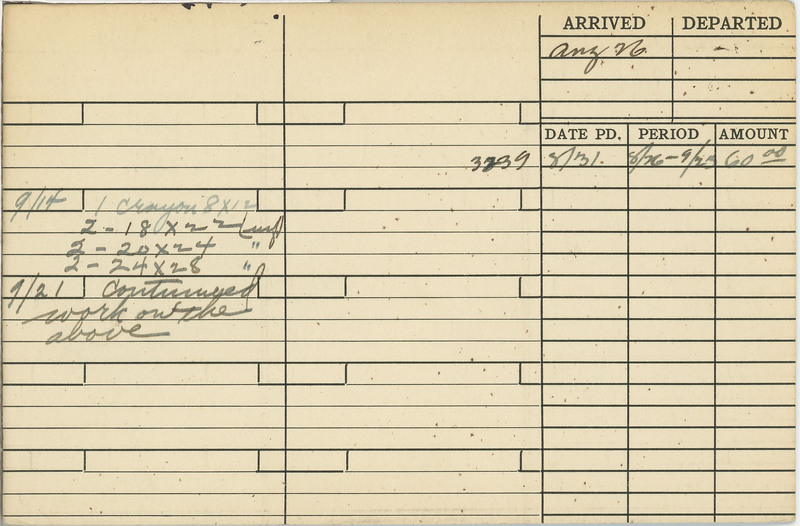 ARRIVED DEPARTED
Aug 26 -
DATE PD. PERIOD AMOUNT
3239 8/31. 8/26-9/23 60 00
9/14 1 crayon 8x12
2 - 18 x 22 (unf)
2 - 20 x 24 "
2 - 24 x 28 "
9/21 Continued
work on the
above